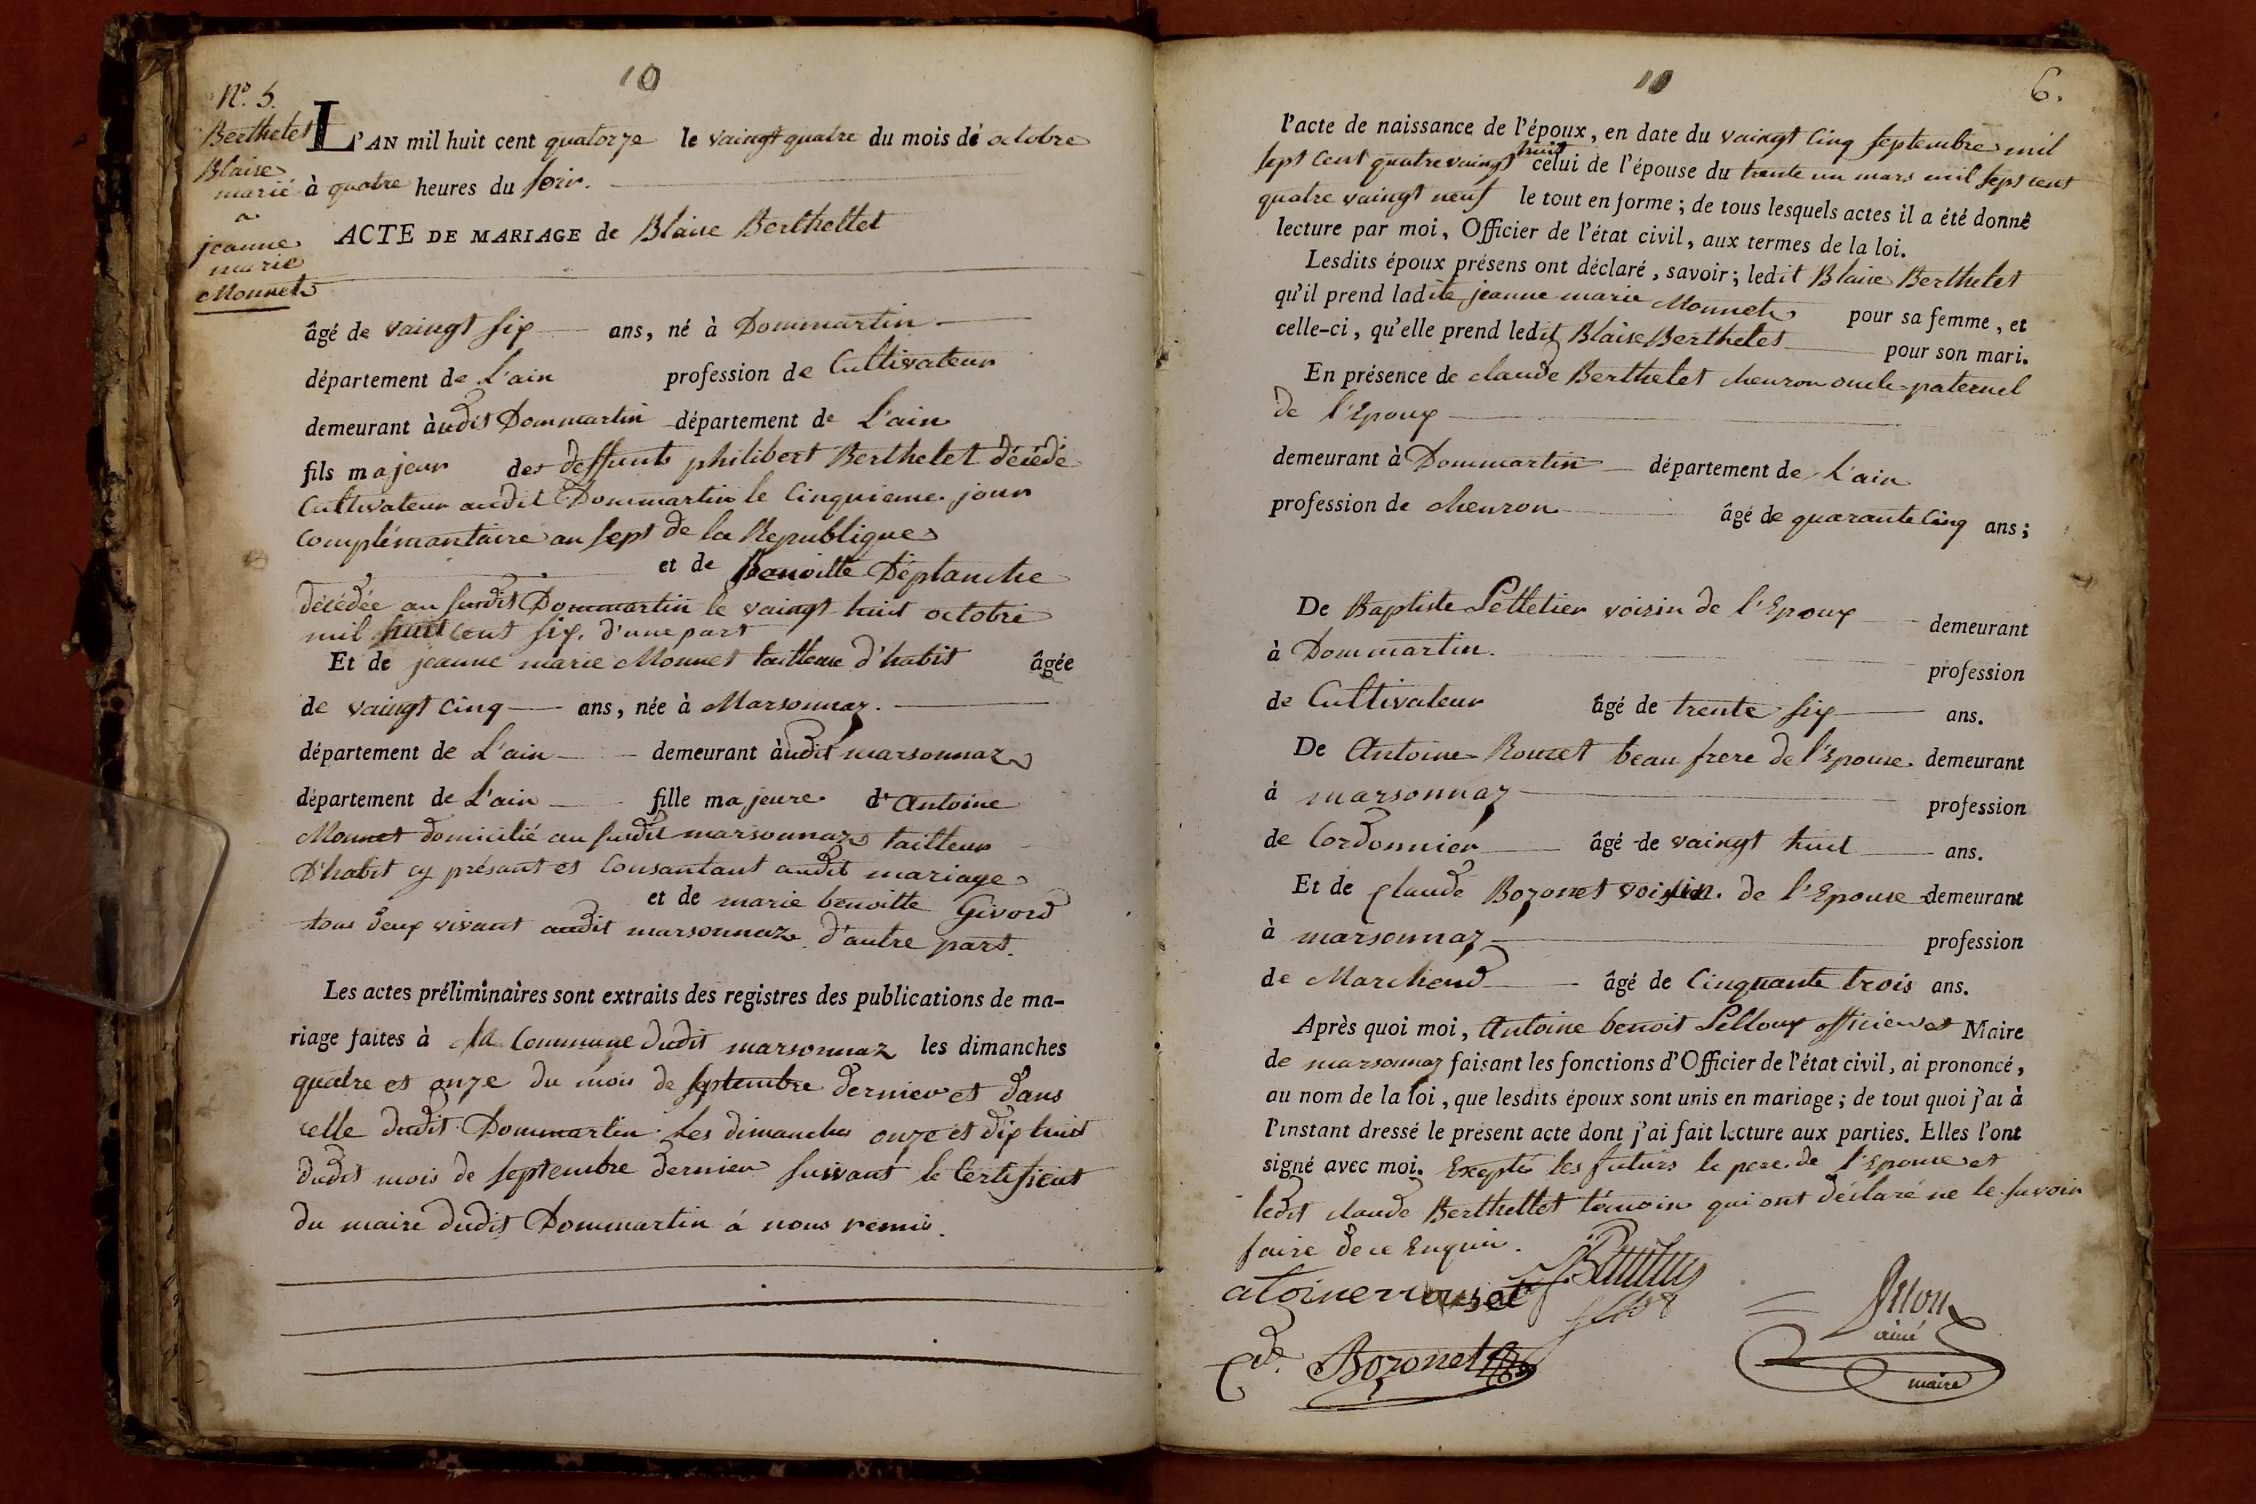 10
N.º 5.
Berthelet
Blaise
marié
a
jeanne
marie
Monnet
L'AN mil huit cent quatorze le vaingt quatre du mois de octobre
à quatre heures du soir.
ACTE DE MARIAGE de Blaise Berthellet
âgé de vaingt six ans, né à Dommartin
département de L'ain profession de Cultivateur
demeurant àudit Dommartin département de L'ain
fils majeur des deffunts philibert Berthelet décédé
Cultivateur audit Dommartin le Cinquieme jour
complémantaire an sept de la Republique
et de Benoitte Déplanche
décédée au susdit Dommartin le vaingt huit octobre
mil huit cent six. d'une part
Et de jeanne marie Monnet tailleuse d'habit âgée
de vaingt cinq ans, née à Marsonnaz.
département de L'ain demeurant àudit marsonnaz
département de L'ain fille majeure d'antoine
Monnet domicilié au susdit marsonnaz tailleur
D'habit cy présant et Consantant audit mariage
et de marie benoitte Givord
tous deux vivant audit marsonnaz d'autre part.
Les actes préliminaires sont extraits des registres des publications de ma-
riage faites à la Commune dudit marsonnaz les dimanches
quatre et onze du mois de septembre dernier et dans
celle dudit Dommartin les dimanches onze et dix huit
dudit mois de septembre dernier suivant le Certificat
du maire dudit Dommartin à nous remis.
10
6.
l'acte de naissance de l'époux, en date du vaingt cinq septembre mil
sept cent quatre vaingt huit celui de l'épouse du trente un mars mil sept cent
quatre vaingt neuf le tout en forme; de tous lesquels actes il a été donné
lecture par moi, Officier de l'état civil, aux termes de la loi.
Lesdits époux présens ont déclaré, savoir; ledit Blaise Berthelet
qu'il prend ladite jeanne marie Monnet pour sa femme, et
celle-ci, qu'elle prend ledit Blaise Berthelet pour son mari.
En présence de claude Berthelet cheuron oncle paternel
de l'Epoux
demeurant à Dommartin département de L'ain
profession de cheuron âgé de quarante Cinq ans;
De Baptiste Pelletier voisin de l'Epoux demeurant
à Dommartin. profession
de Cultivateur âgé de trente six ans.
De Antoine Rouset beau frere de l'Epouse demeurant
à marsonnaz profession
de Cordonnier âgé de vaingt huit ans.
Et de Claude Bozonet voisin de l'Epouse demeurant
à marsonnaz profession
de Marchand âgé de Cinquante trois ans.
Après quoi moi, Antoine benoit Pelloux officier et Maire
de marsonnaz faisant les fonctions d'Officier de l'état civil, ai prononcé,
au nom de la loi, que lesdits époux sont unis en mariage; de tout quoi j'ai à
l'instant dressé le présent acte dont j'ai fait lecture aux parties. Elles l'ont
signé avec moi. Exeptés les futurs le pere de l'Epouse et
ledit claude Berthellet témoin qui ont déclaré ne le savoir
faire de ce Enquis.
atoine rouset
Cde. Bozonet
ainé
maire